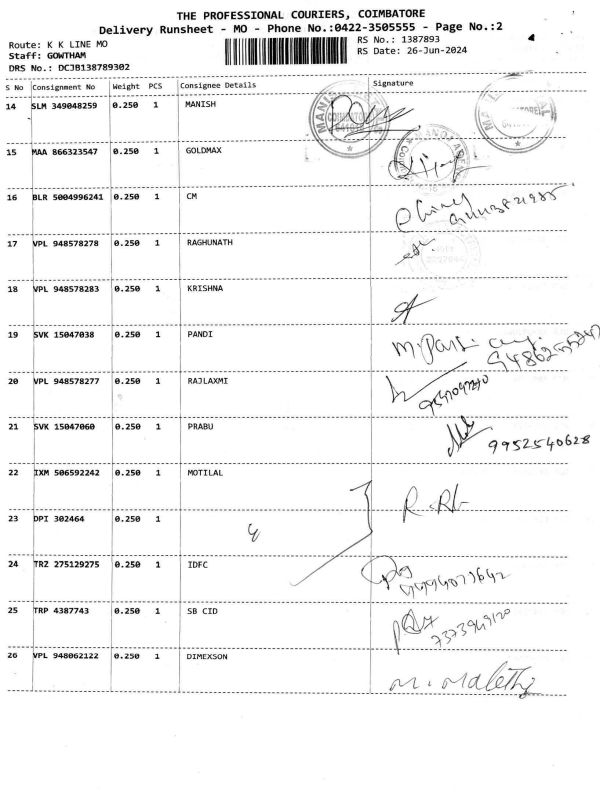 THE PROFESSIONAL COURIERS, COIMBATORE
Delivery Runsheet - MO - Phone No.:0422-3505555 - Page No.:2
Route: K K LINE MO
RS No.: 1387893
Staff: GOWTHAM
RS Date: 26-Jun-2024
DRS No.: DCJB138789302
S No Consignment No Weight PCS Consignee Details Signature
14 SLM 349048259 0.250 1 MANISH
15 MAA 866323547 0.250 1 GOLDMAX
16 BLR 5004996241 0.250 1 CM
17 VPL 948578278 0.250 1 RAGHUNATH
18 VPL 948578283 0.250 1 KRISHNA
19 SVK 15047038 0.250 1 PANDI
20 VPL 948578277 0.250 1 RAJLAXMI
21 SVK 15047060 0.250 1 PRABU
9952540628
22 IXM 506592242 0.250 1 MOTILAL
23 DPI 302464 0.250 1
24 TRZ 275129275 0.250 1 IDFC
25 TRP 4387743 0.250 1 SB CID
7373949120
26 VPL 948062122 0.250 1 DIMEXSON